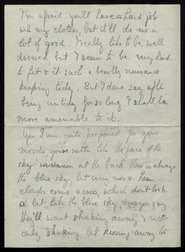 I'm afraid you'll have a hard job
with my clothes, but it'll do me a
lot of good. I really like to be well
dressed, but I seem to be very hard
to fit & it's such a beastly nuisance
keeping tidy. But I dare say after
being untidy for so long I shall be
more amenable to it.
Yes I am quite prepared for your
moods your rather like the face of the
sky
the blue sky but every now & then
clouds come across, which don't look
a bit like the blue sky
they'll want shaking away, & not
only shaking, but kissing away too